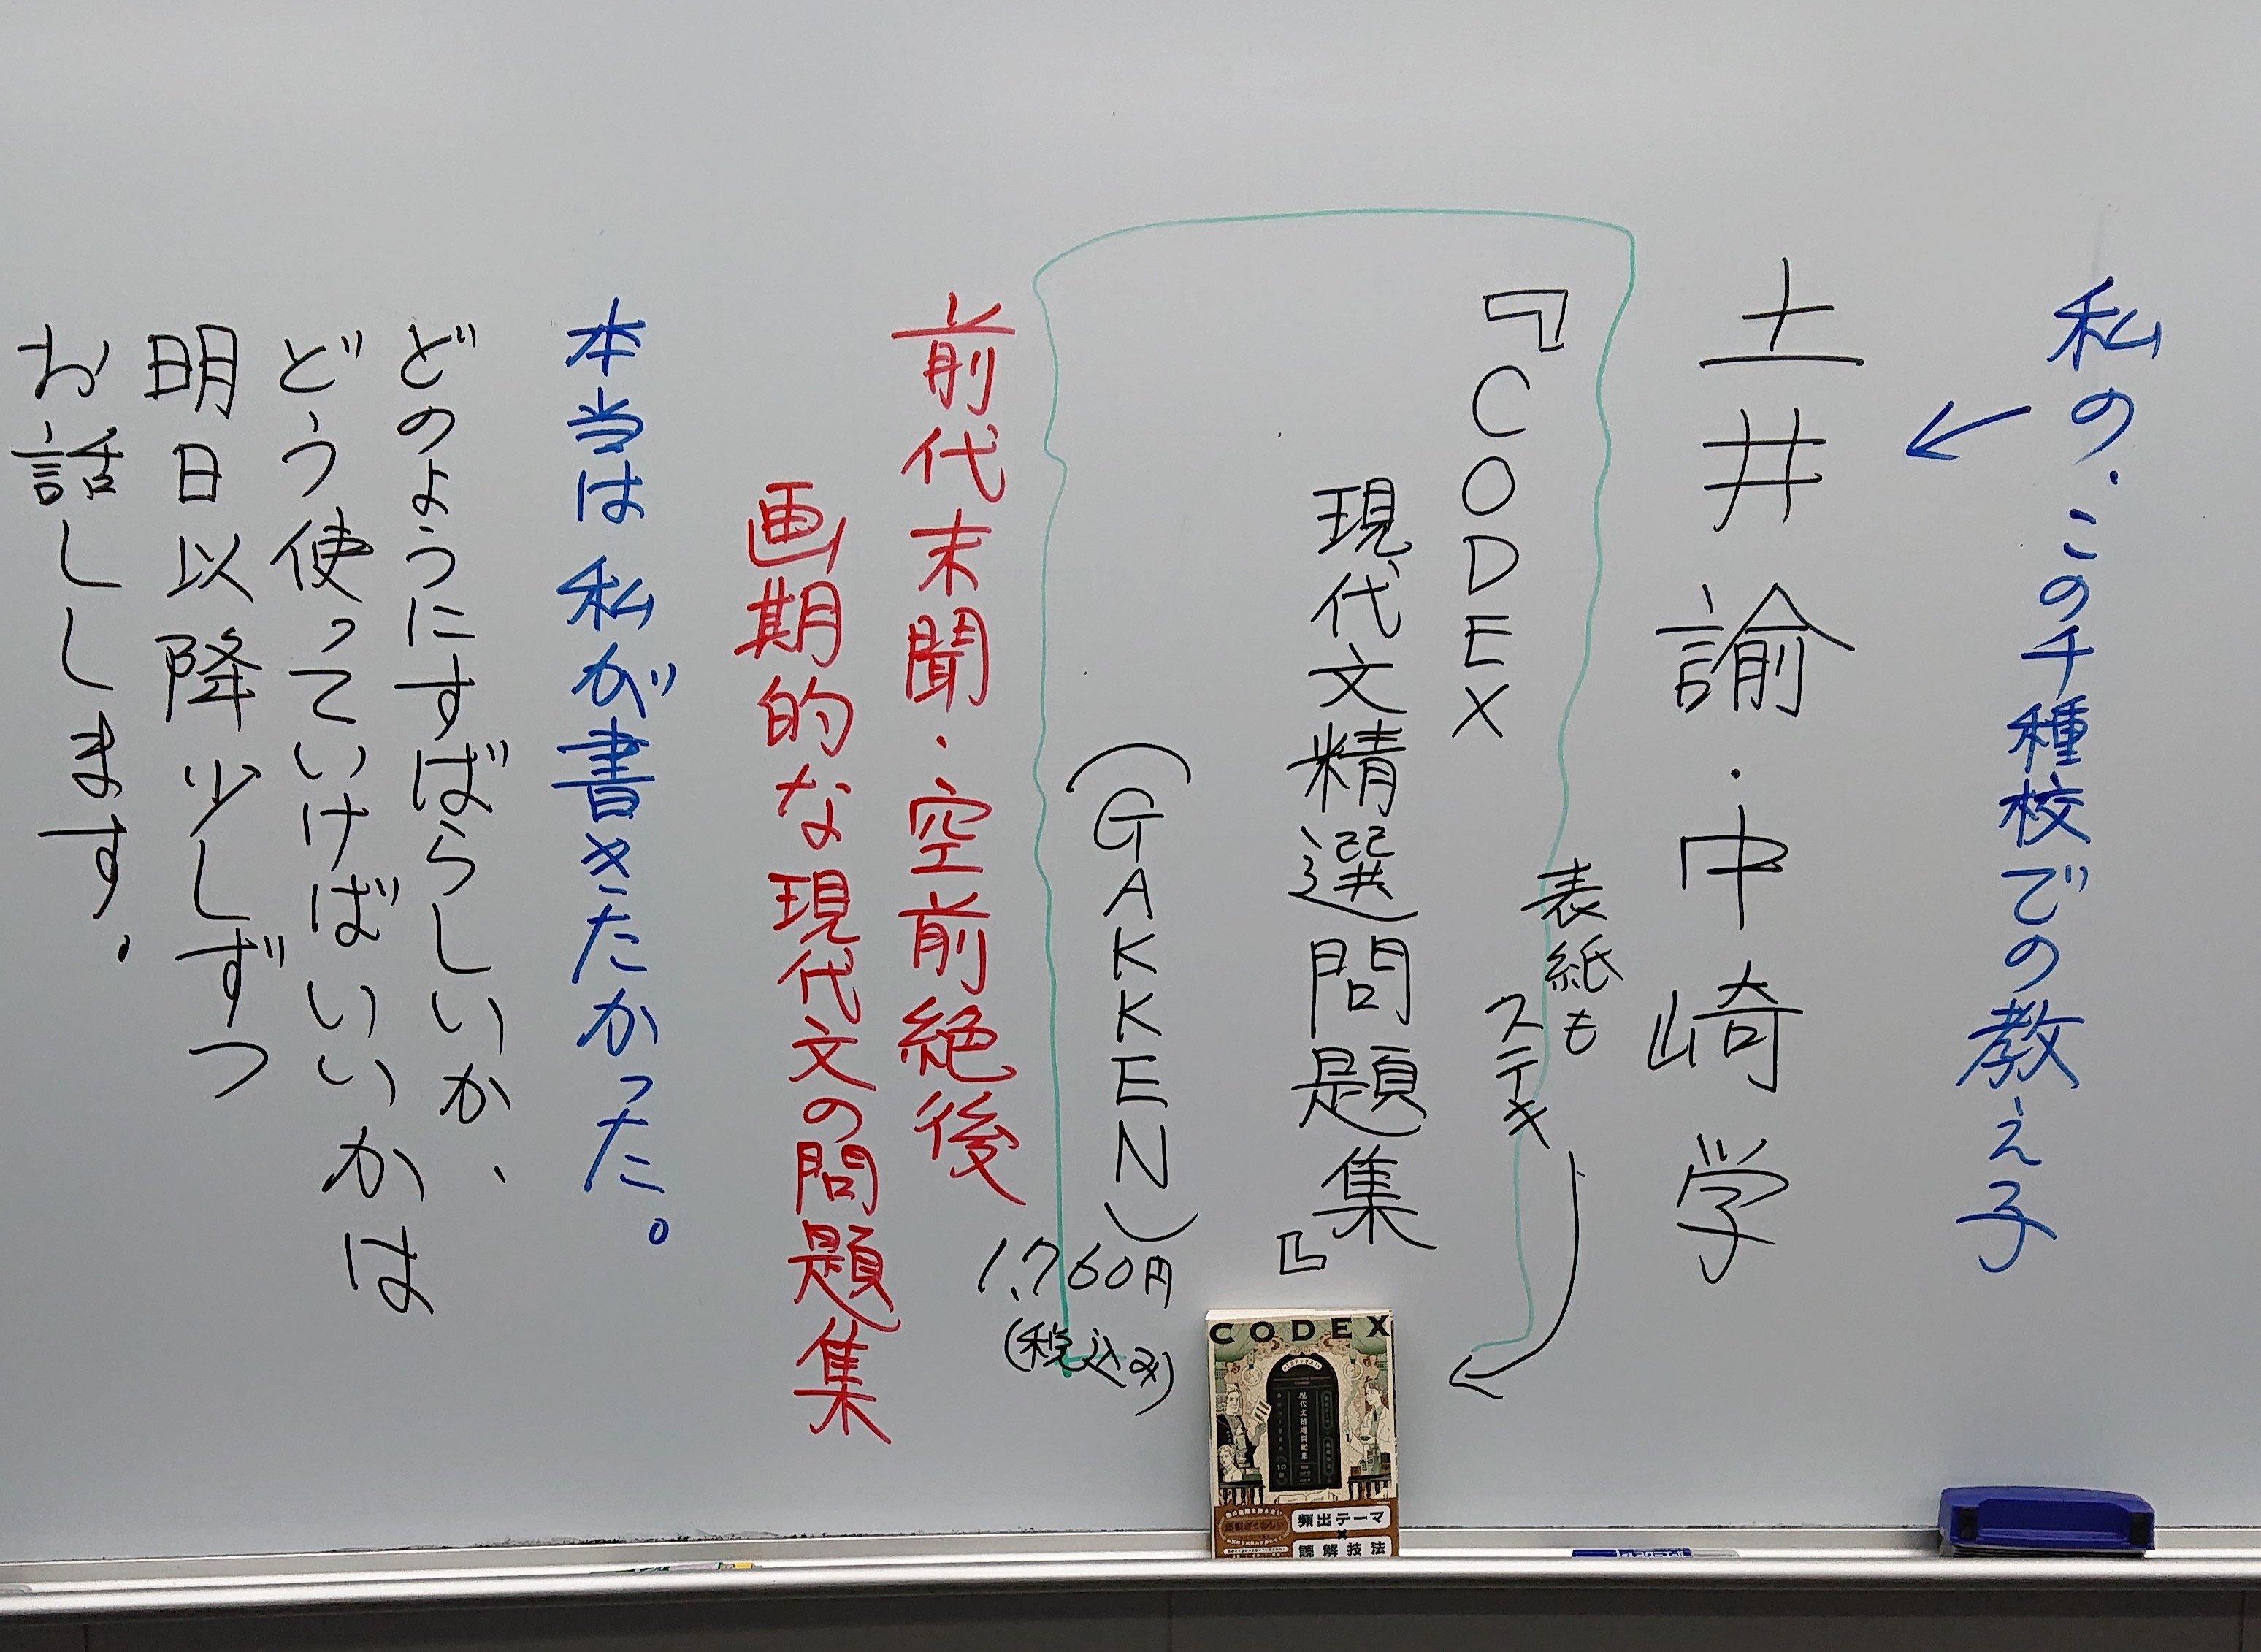 私の、この千種校での教え子
土井諭・中崎学
表紙も
ステキ
『CODEX
現代文精選問題集』
(GAKKEN)
1,760円
(税込み)
前代末聞・空前絶後
画期的な現代文の問題集
本当は私が書きたかった。
どのようにすばらしいか、
どう使っていけばいいかは
明日以降少しずつ
お話しします.
CODEX
現代文精選問題集
頻出テーマ
×
読解技法